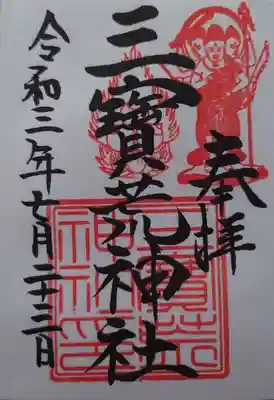 奉拝
三寶荒神社
令和三年七月二十三日